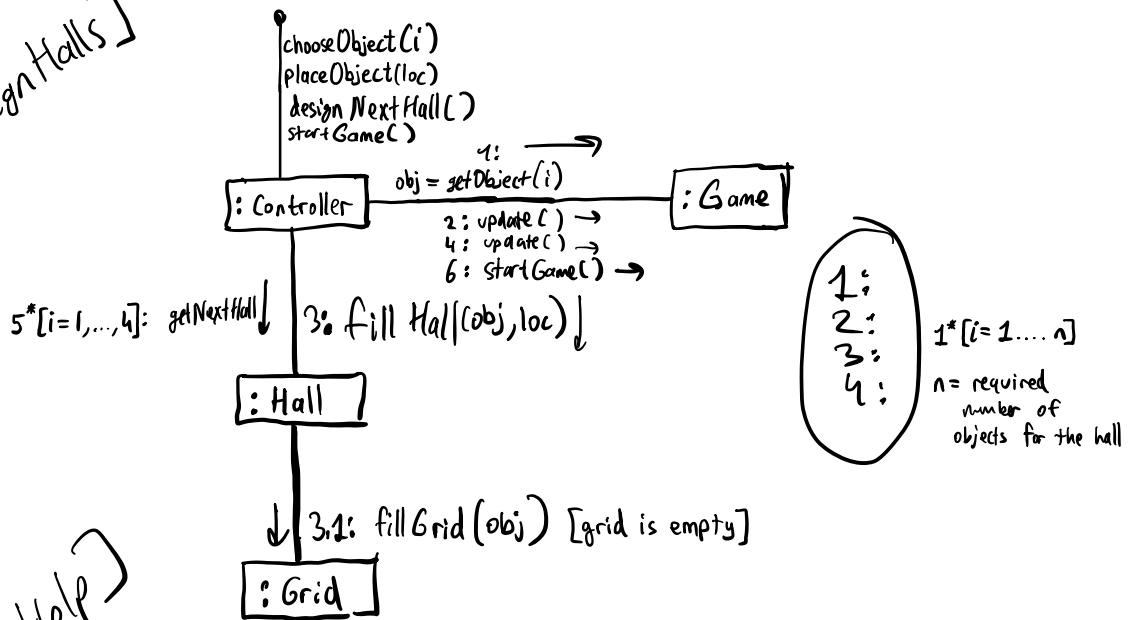 ignHalls]
chooseObject(i)
placeObject(loc)
designNextHall()
startGame()
1:
obj = getObject(i)
: Controller
: Game
2: update()
4: update()
6: startGame()
5*[i=1,...,4]: getNextHall
3: fillHall(obj,loc)
1:
2:
3:
4:
1*[i=1....n]
n= required
number of
objects for the hall
: Hall
3.1: fillGrid(obj) [grid is empty]
: Grid
Help]